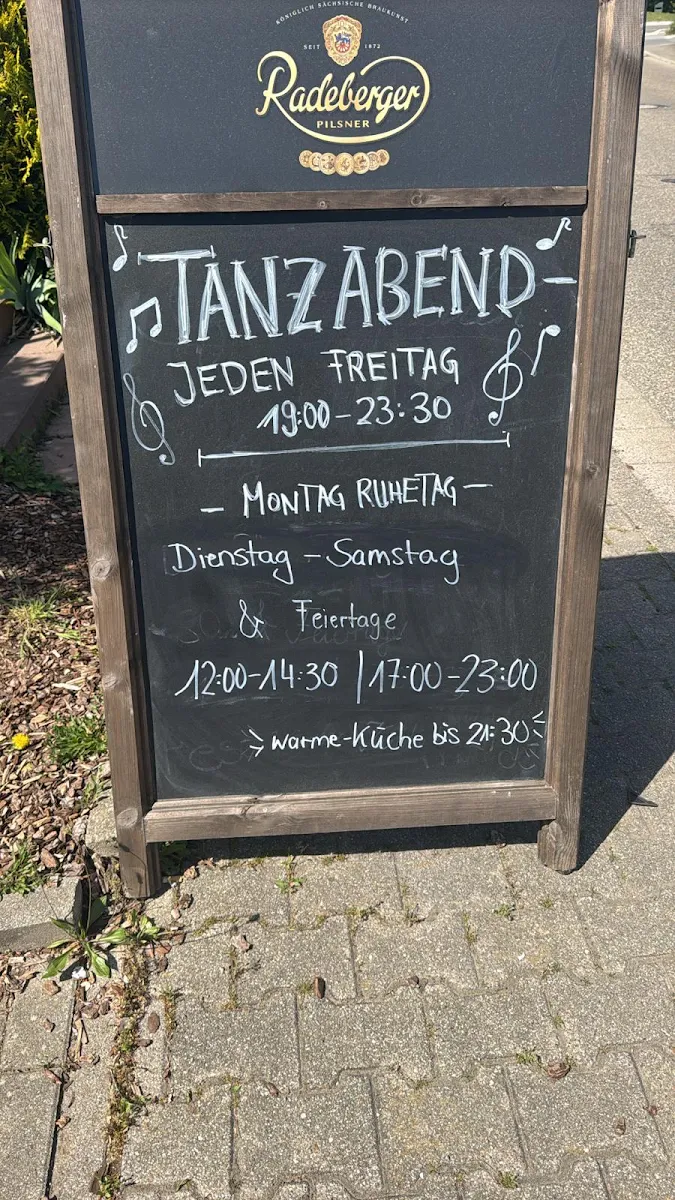 KÖNIGLICH SÄCHSISCHE BRAUKUNST
SEIT 1872
Radeberger
PILSNER
TANZABEND
JEDEN FREITAG
19:00-23:30
- MONTAG RUHETAG -
Dienstag - Samstag
& Feiertage
12:00-14:30 | 17:00-23:00
warme-Küche bis 21:30